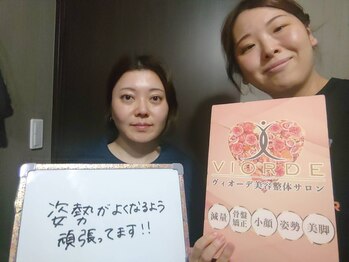 姿勢がよくなるよう
頑張ってます!!
VIORDE
ヴィオーデ美容整体サロン
減量
骨盤
矯正
小顔
姿勢
美脚